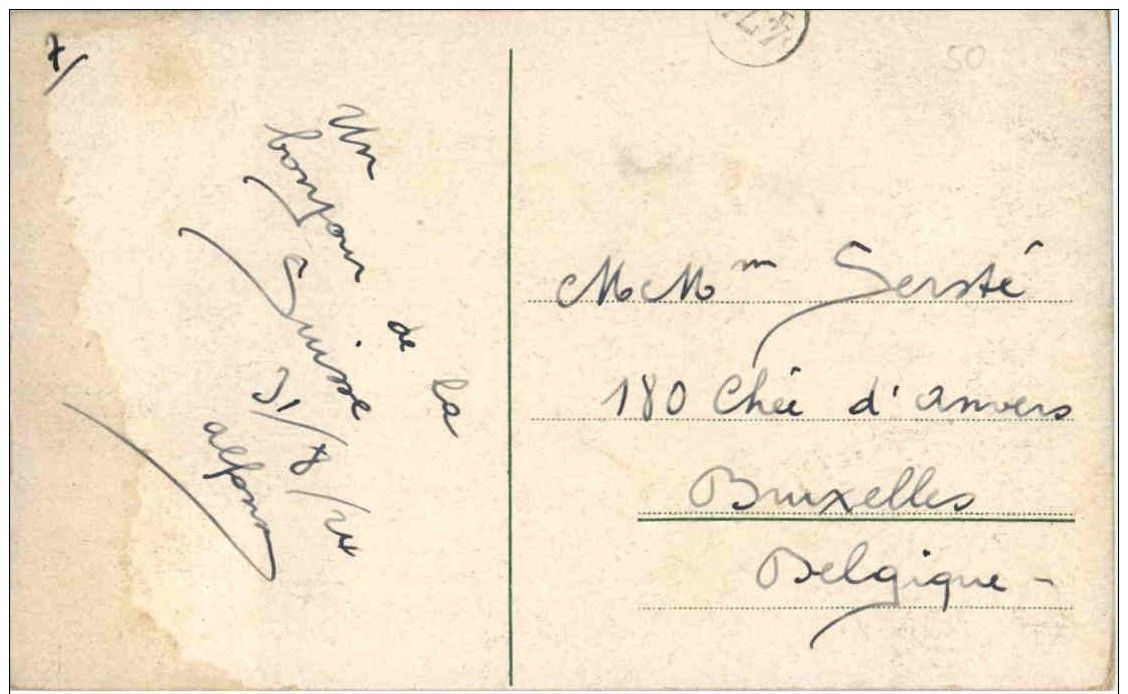 Un
bonjour de la
Suisse
31/8/24
alfons
M Mm Sersté
180 Chée d'anvers
Bruxelles
Belgique -
50